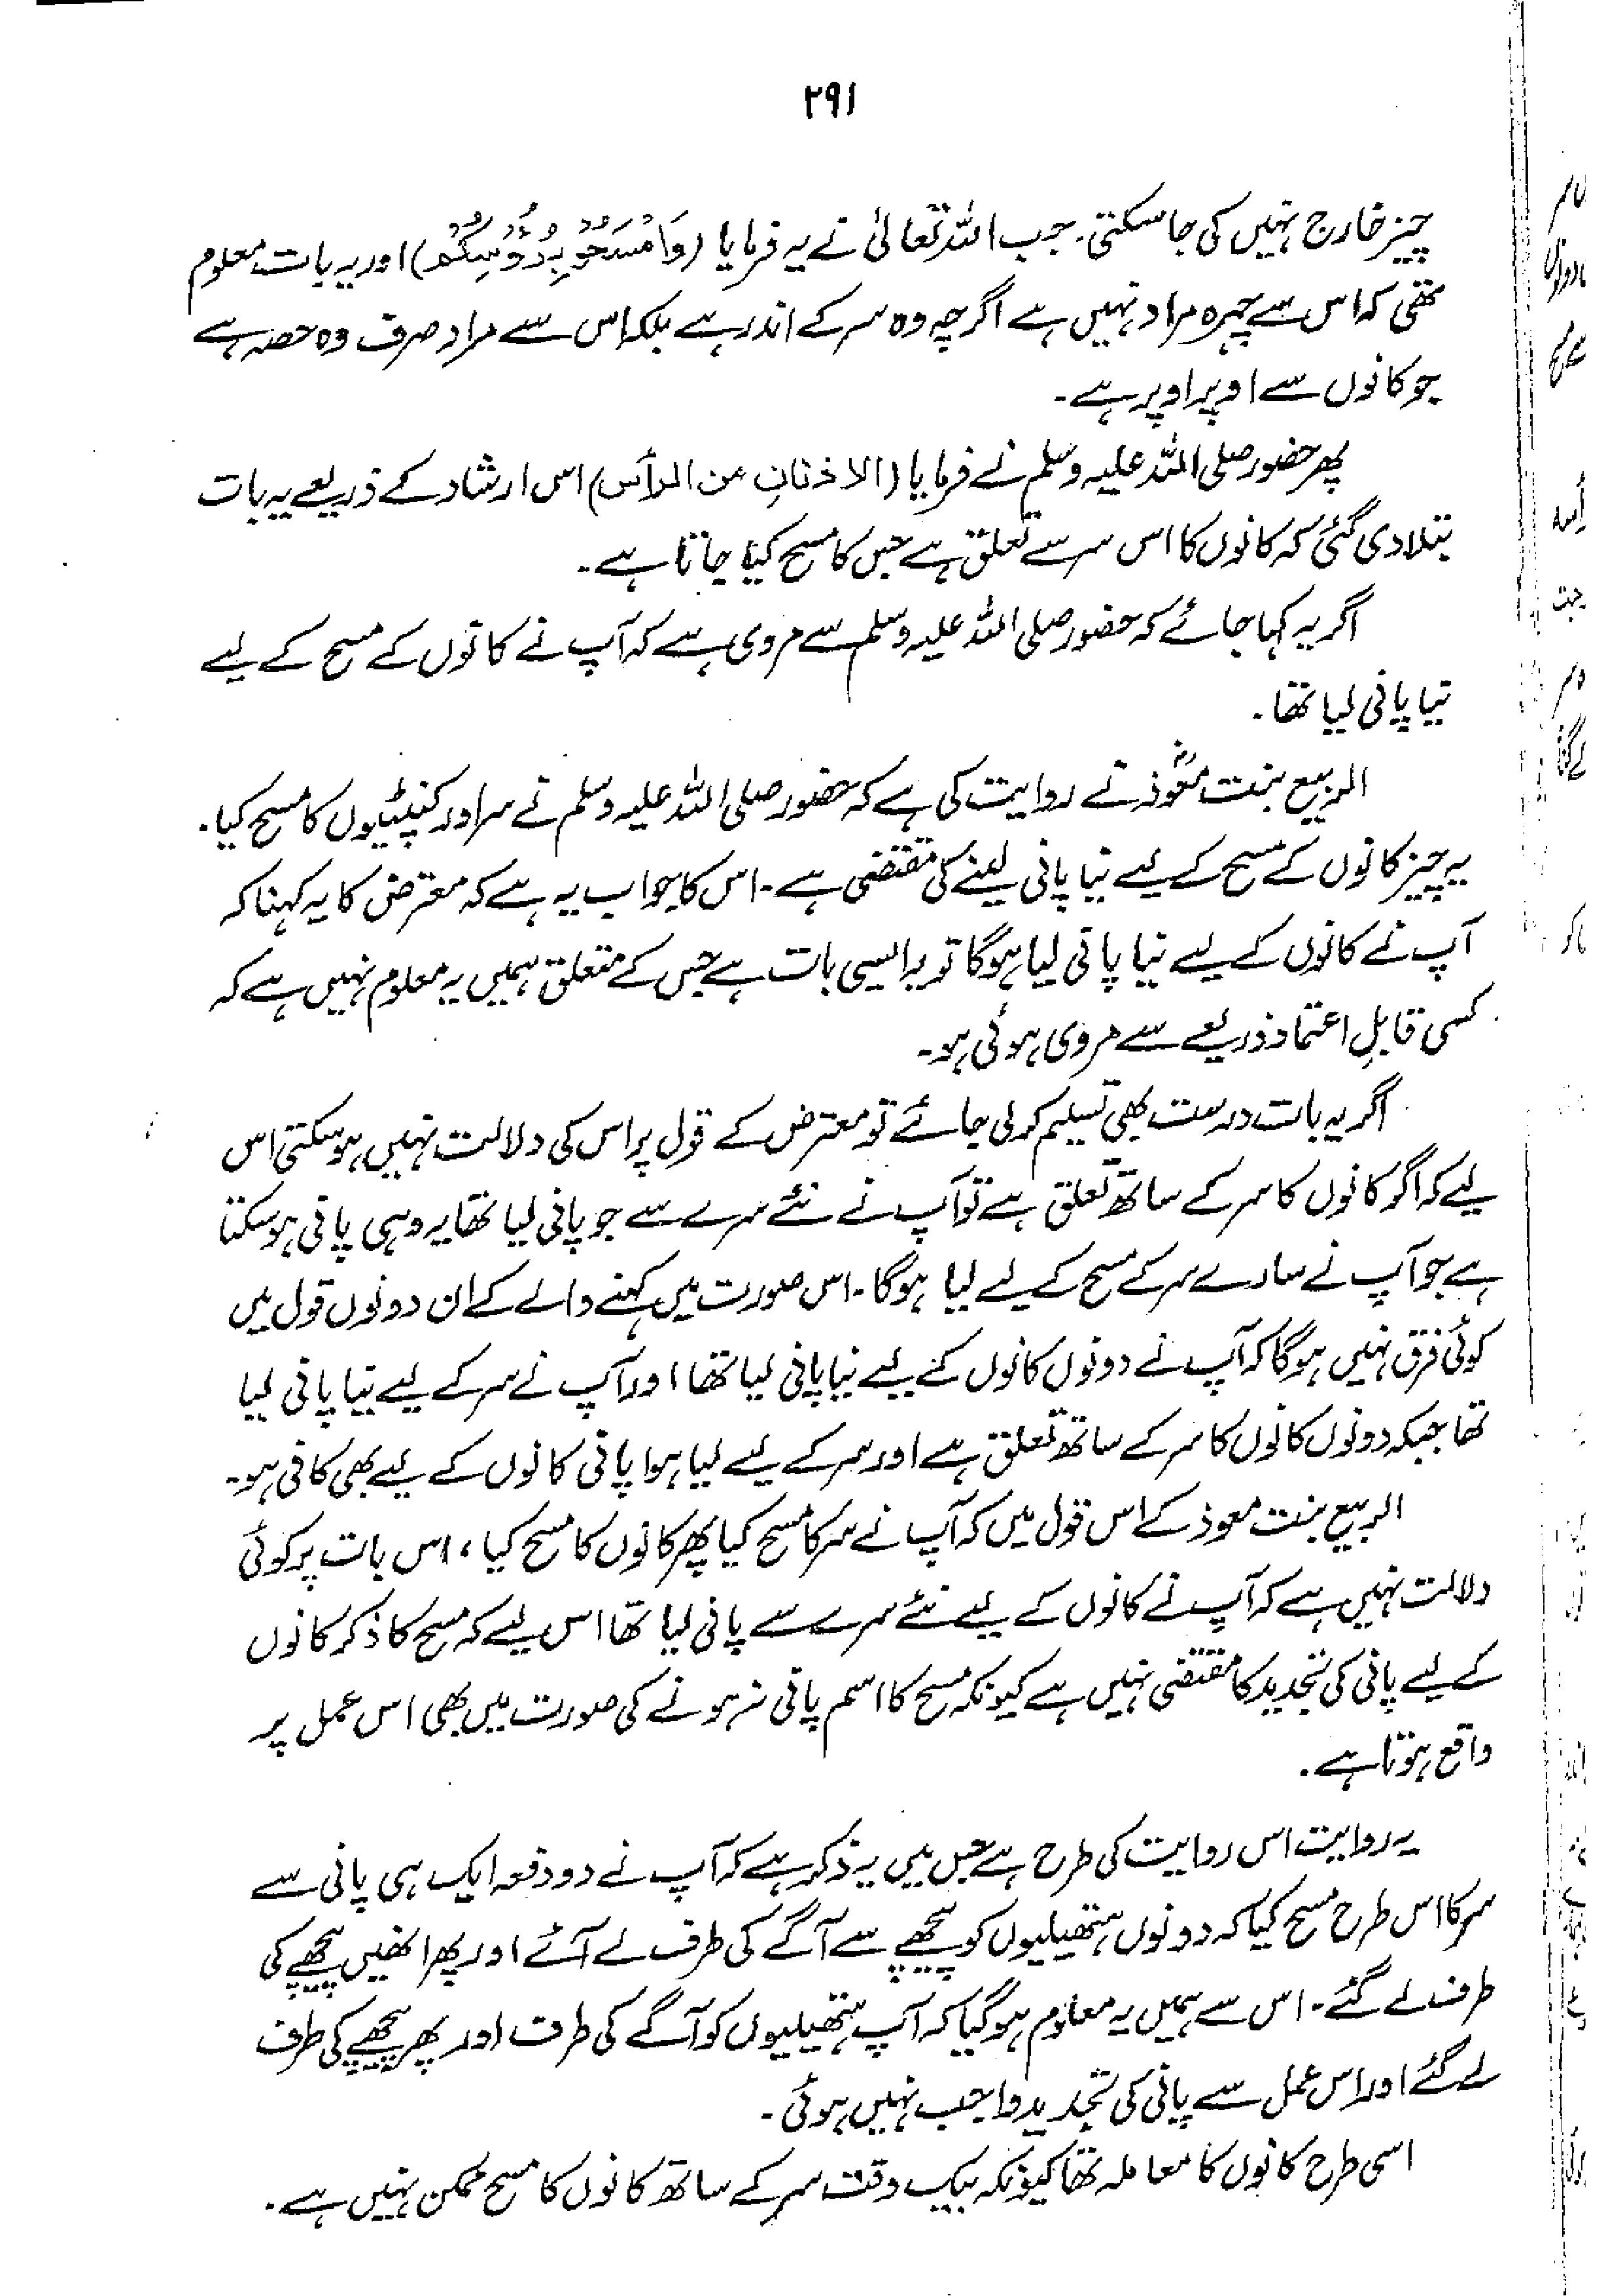 ۲۹۱
چیز خارج نہیں کی جاسکتی۔ جب اللہ تعالیٰ نے یہ فرمایا (وَامْسَحُوْ بِرُؤُسِكُمْ) اور یہ بات معلوم
تھی کہ اس سے چہرہ مراد نہیں ہے اگرچہ وہ سر کے اندر ہے بلکہ اس سے مراد صرف وہ حصہ ہے
جو کانوں سے اوپر اوپر ہے۔
پھر حضور صلی اللہ علیہ وسلم نے فرمایا (الاذنانِ من الرأس) اس ارشاد کے ذریعے یہ بات
بتلا دی گئی کہ کانوں کا اس سر سے تعلق ہے جس کا مسح کیا جاتا ہے۔
اگر یہ کہا جائے کہ حضور صلی اللہ علیہ وسلم سے مروی ہے کہ آپ نے کانوں کے مسح کے لیے
نیا پانی لیا تھا۔
الربیع بنت معوذؓ نے روایت کی ہے کہ حضور صلی اللہ علیہ وسلم نے سر اور کنپٹیوں کا مسح کیا۔
یہ چیز کانوں کے مسح کے لیے نیا پانی لینے کی مقتضی ہے۔ اس کا جواب یہ ہے کہ معترض کا یہ کہنا کہ
آپ نے کانوں کے لیے نیا پانی لیا ہوگا تو یہ ایسی بات ہے جس کے متعلق ہمیں یہ معلوم نہیں ہے کہ
کسی قابلِ اعتماد ذریعے سے مروی ہوئی ہو۔
اگر یہ بات درست بھی تسلیم کر لی جائے تو معترض کے قول پر اس کی دلالت نہیں ہو سکتی اس
لیے کہ اگر کانوں کا سر کے ساتھ تعلق ہے تو آپ نے نئے سرے سے جو پانی لیا تھا یہ وہی پانی ہو سکتا
ہے جو آپ نے سارے سر کے مسح کے لیے لیا ہوگا۔ اس صورت میں کہنے والے کے ان دونوں قول میں
کوئی فرق نہیں ہوگا کہ آپ نے دونوں کانوں کے لیے نیا پانی لیا تھا اور آپ نے سر کے لیے نیا پانی لیا
تھا جبکہ دونوں کانوں کا سر کے ساتھ تعلق ہے اور سر کے لیے لیا ہوا پانی کانوں کے لیے بھی کافی ہو۔
الربیع بنت معوذ کے اس قول میں کہ آپ نے سر کا مسح کیا پھر کانوں کا مسح کیا، اس بات پر کوئی
دلالت نہیں ہے کہ آپ نے کانوں کے لیے نئے سرے سے پانی لیا تھا اس لیے کہ مسح کا ذکر کانوں
کے لیے پانی کی تجدید کا مقتضی نہیں ہے کیونکہ مسح کا اسم پانی نہ ہونے کی صورت میں بھی اس عمل پر
واقع ہوتا ہے۔
یہ روایت اس روایت کی طرح ہے جس میں یہ ذکر ہے کہ آپ نے دو دفعہ ایک ہی پانی سے
سر کا اس طرح مسح کیا کہ دونوں ہتھیلیوں کو پیچھے سے آگے کی طرف لے آئے اور پھر انھیں پیچھے کی
طرف لے گئے۔ اس سے ہمیں یہ معلوم ہو گیا کہ آپ ہتھیلیوں کو آگے کی طرف اور پھر پیچھے کی طرف
لے گئے اور اس عمل سے پانی کی تجدید واجب نہیں ہوئی۔
اسی طرح کانوں کا معاملہ تھا کیونکہ بیک وقت سر کے ساتھ کانوں کا مسح ممکن نہیں ہے۔